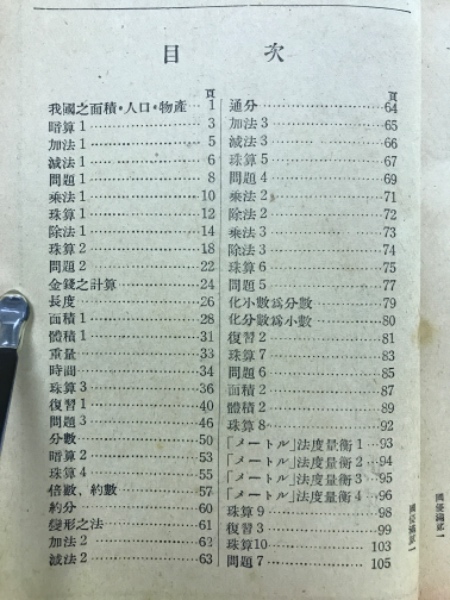 目次
頁
我國之面積·人口·物產 1
暗算1 3
加法1 5
減法1 6
問題1 8
乘法1 10
珠算1 12
除法1 14
珠算2 18
問題2 22
金錢之計算 24
長度 26
面積1 28
體積1 31
重量 33
時間 34
珠算3 36
復習1 40
問題3 46
分數 50
暗算2 53
珠算4 55
倍數、約數 57
約分 60
變形之法 61
加法2 62
減法2 63
頁
通分 64
加法3 65
減法3 66
珠算5 67
問題4 69
乘法2 71
除法2 72
乘法3 73
除法3 74
珠算6 75
問題5 77
化小數爲分數 79
化分數爲小數 80
復習2 81
珠算7 83
問題6 85
面積2 87
體積2 89
珠算8 92
「メートル」法度量衡1 93
「メートル」法度量衡2 94
「メートル」法度量衡3 95
「メートル」法度量衡4 96
珠算9 98
復習3 99
珠算10 103
問題7 105